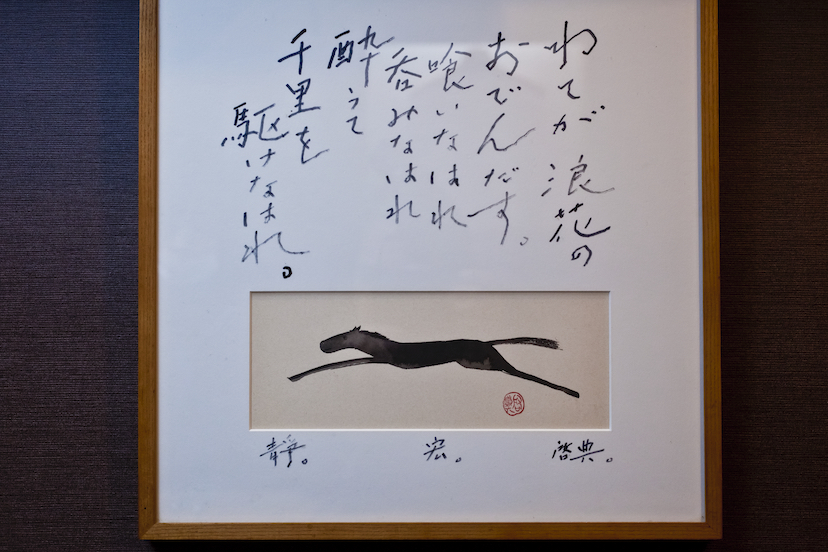 わてが浪花の
おでんだす。
喰いなはれ
呑みなはれ
酔うて
千里を
駆けなはれ。
啓典。
宏。
靜。